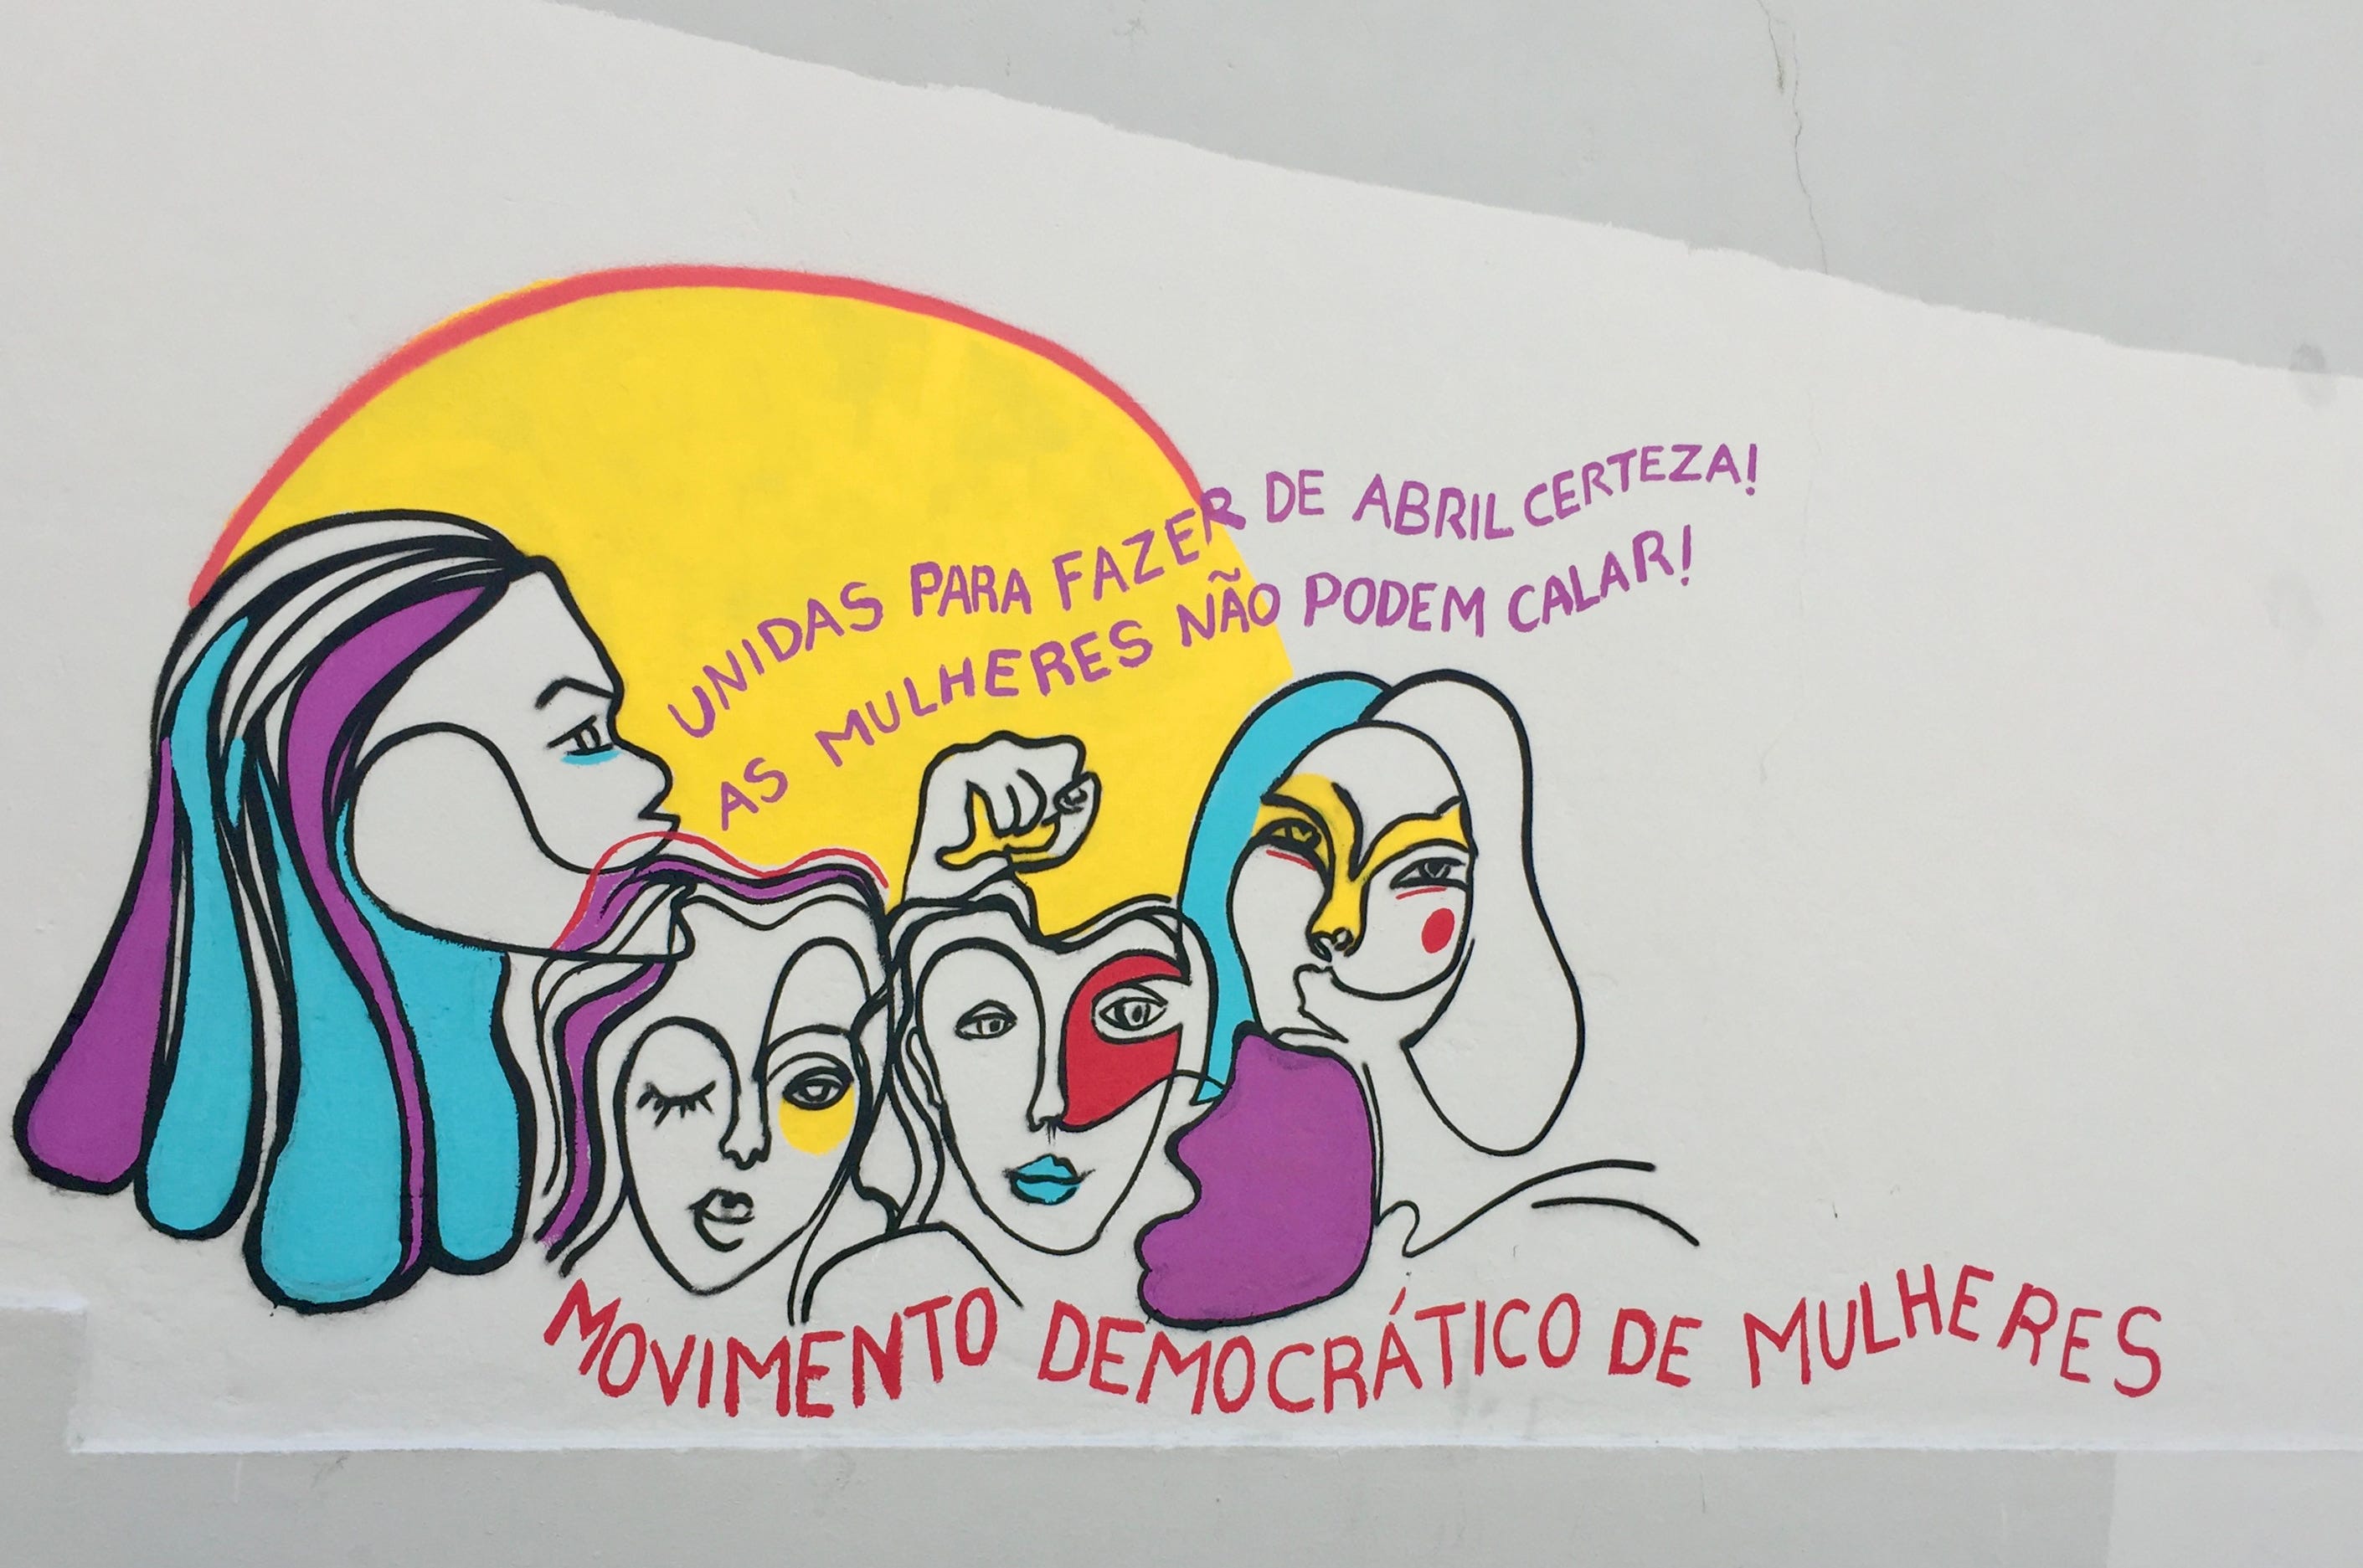 UNIDAS PARA FAZER DE ABRIL CERTEZA!
AS MULHERES NÃO PODEM CALAR!
MOVIMENTO DEMOCRÁTICO DE MULHERES